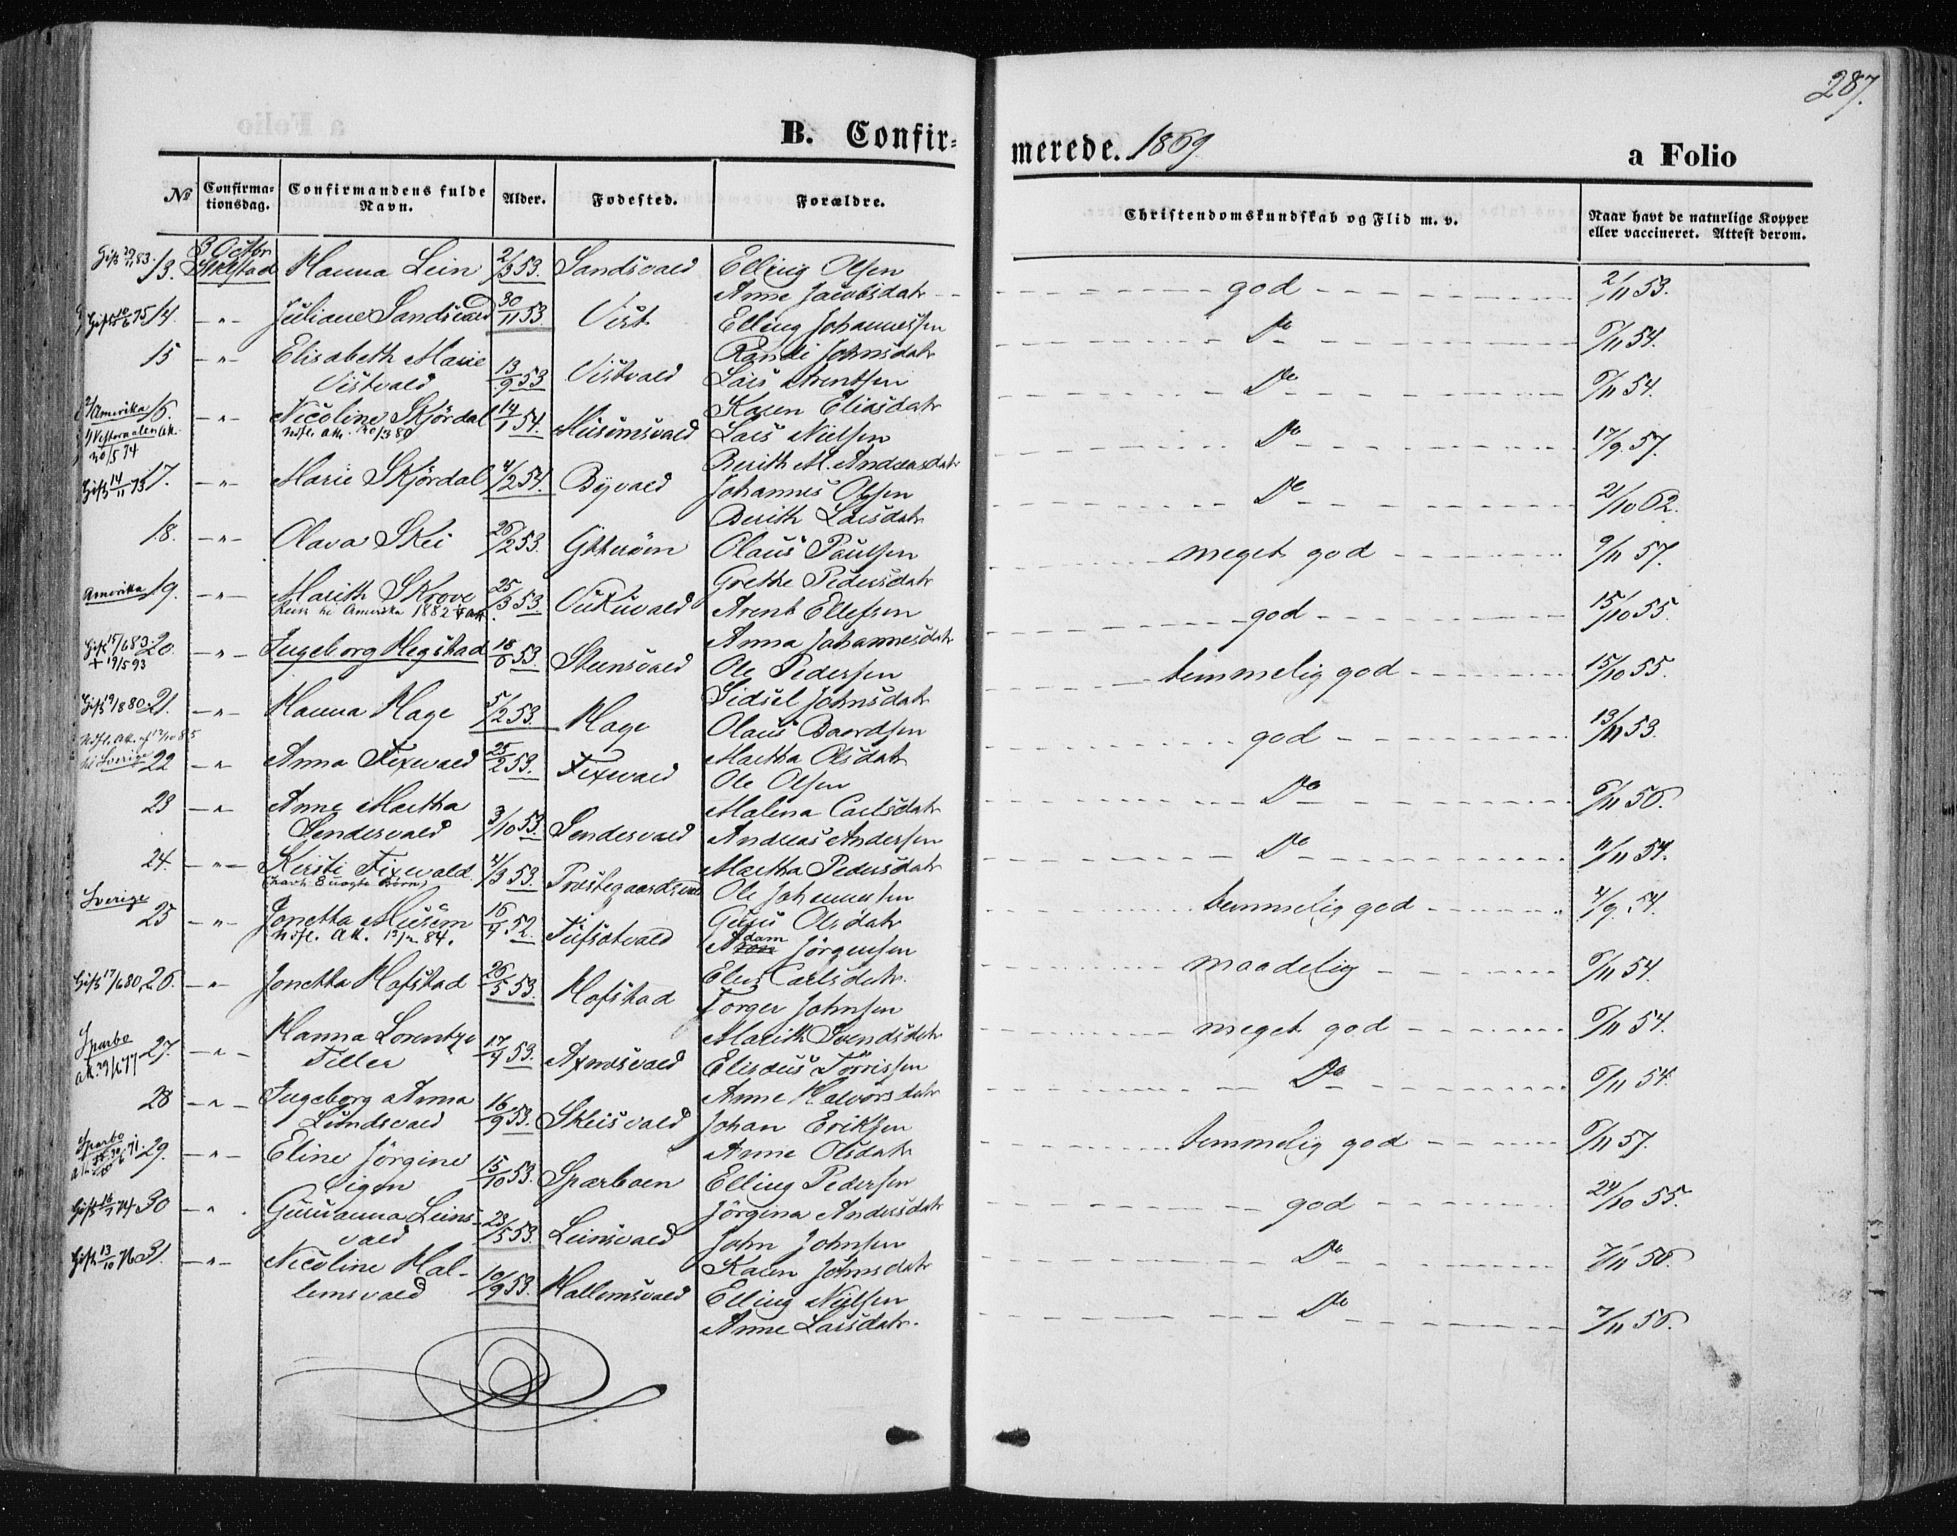 287.
B. Confir-
merede. 1869.
a Folio
No
Confirma-
tionsdag.
Confirmandens fulde
Navn.
Alder.
Fødested.
Forældre.
Christendomskundskab og Flid m. v.
Naar havt de naturlige Kopper
eller vaccineret. Attest derom.
Gift 29/11 83. 13. 3 Octbr Stiklestad Hanna Lein 2/3 53. Sandsvald Elling Olsen
Anne Jacobsdatr god 2/11 53.
Gift 10/6 75 14. -"- Juliane Sandsvald 30/11 53 Vist Elling Johannessen
Randi Johnsdatr Do 6/11 54.
15 -"- Elisabeth Marie
Vistvald 13/9 53 Vistvald Lars Arentsen
Karen Eliasdatr Do 6/11 54.
Amerika 16. -"- Nicoline Skjördal 14/1 54. Musumsvald Lars Nielsen
Berith M. Andreasdatr Do 17/9 57.
Vesteraalen Att.
20/5 74
Gift 14/11 73 17. -"- Marie Skjördal 4/2 54. Byvald Johannes Olsen
Berith Larsdatr Do 21/10 62.
18. -"- Olava Skei 26/2 53. Ytterøen Olaus Paulsen
Grethe Pedersdatr meget god 9/11 57.
Amerika 19. -"- Marith Skrove 25/3 53. Vukuvald Arent Ellefsen
Reist til Amerika 1882
Anna Johannesdatr god 15/10 55.
Gift 15/6 83. 20. -"- Ingeborg Hegstad 18/6 53. Steensvald Ole Pedersen
+ 19/5 93
Sidsel Johnsdatr temmelig god 15/10 55.
21. -"- Hanna Hage 5/12 53. Hage Olaus Baardsen
Martha Olsdatr god 13/11 53.
til Sverige 22 -"- Anna Fixevald 25/2 53. Fixevald Ole Olsen
Malena Carlsdatr Do 6/11 56.
23 -"- Anne Martha
Sendesvald 3/10 53. Sendesvald Andreas Andersen
Martha Pedersdatr Do 11/11 54.
24. -"- Kirsti Fixevald 4/3 53. Præstegaardsvald Ole Johannesen
(havt 3 uægte Børn)
Guru Olsdatr temmelig god 4/9 54.
Sverige 25 -"- Jonetta Musum 16/4 52. Tufsetvald Adam Jörgensen
Udfl. Att. 84.
Elen Carlsdatr. maadelig 6/11 54.
Gift 17/6 80. 26. -"- Jonetta Hofstad 26/5 53. Hofstad Torger Johnsen
Marith Svendsdatr meget god 6/11 54.
Sparbo 27. -"- Hanna Lorentze
Tiller 17/4 53. Elisæus Törrissen
Anne Halvorsdatr Do 6/11 54.
28 -"- Ingeborg Anna
Lundsvald 16/9 53. Skeisvald Johan Eriksen
Anne Olsdatr temmelig god 6/11 57.
Sparbo 29. -"- Eline Jörgine
Sigen 15/10 53. Sparboen Elling Pedersen
Jörgina Andersdatr god 24/10 55.
Gift 74 30 -"- Guruanna Leins-
vald 23/5 53. Leinsvald John Johnsen
Karen Johnsdatr Do 7/11 56.
Gift 13/10 76 31. -"- Nicoline Hal-
lemsvald 10/9 53. Hallemsvald Elling Nielsen
Anne Larsdatr. Do 7/11 56.